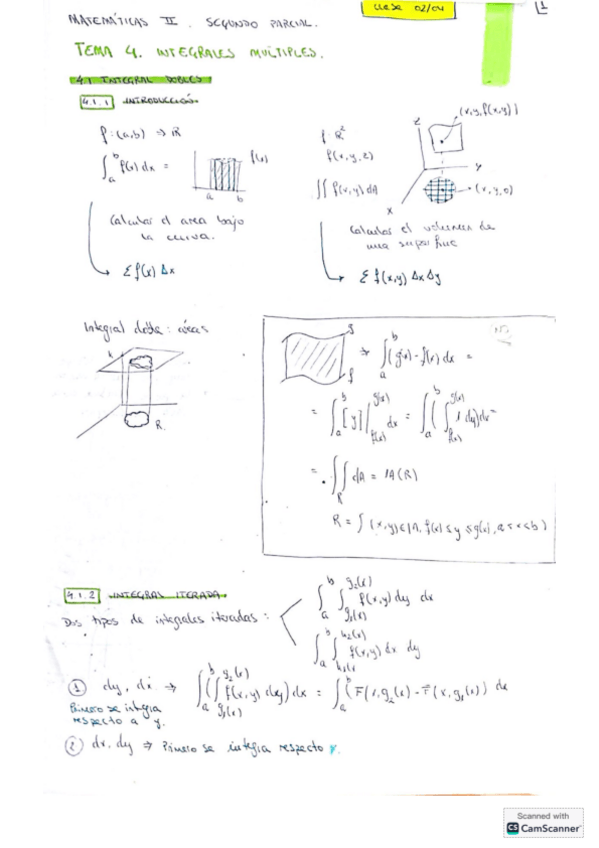 MATEMÁTICAS II. SEGUNDO PARCIAL.
clase 02/04
1
TEMA 4. INTEGRALES MÚLTIPLES.
4.1 INTEGRAL DOBLES
4.1.1 INTRODUCCIÓN
f: (a,b) ⇒ ℝ
∫_a^b f(x) dx =
f(x)
a b
Calcular el area bajo
la curva.
Σ f(x) Δx
f: ℝ²
f(x,y,z)
∬ f(x,y) dA
z
y
x
(x,y,f(x,y))
(x,y,0)
Calcular el volumen de
una superficie
Σ f(x,y) Δx Δy
Integral doble: áreas
R
g
f
⇒ ∫_a^b (g(x) - f(x)) dx =
= ∫_a^b [y]|_{f(x)}^{g(x)} dx = ∫_a^b (∫_{f(x)}^{g(x)} 1 dy) dx =
= ∬_R dA = A(R)
R = { (x,y) ∈ A, f(x) ≤ y ≤ g(x), a ≤ x ≤ b }
4.1.2 INTEGRAL ITERADA.
Dos tipos de integrales iteradas:
∫_a^b ∫_{g₁(x)}^{g₂(x)} f(x,y) dy dx
∫_a^b ∫_{h₁(x)}^{h₂(x)} f(x,y) dx dy
① dy, dx ⇒ ∫_a^b (∫_{g₁(x)}^{g₂(x)} f(x,y) dy) dx = ∫_a^b (F(x,g₂(x) - F(x,g₁(x)) dx
Primero se integra
respecto a y.
② dx. dy ⇒ Primero se integra respecto x.
Scanned with
CS CamScanner